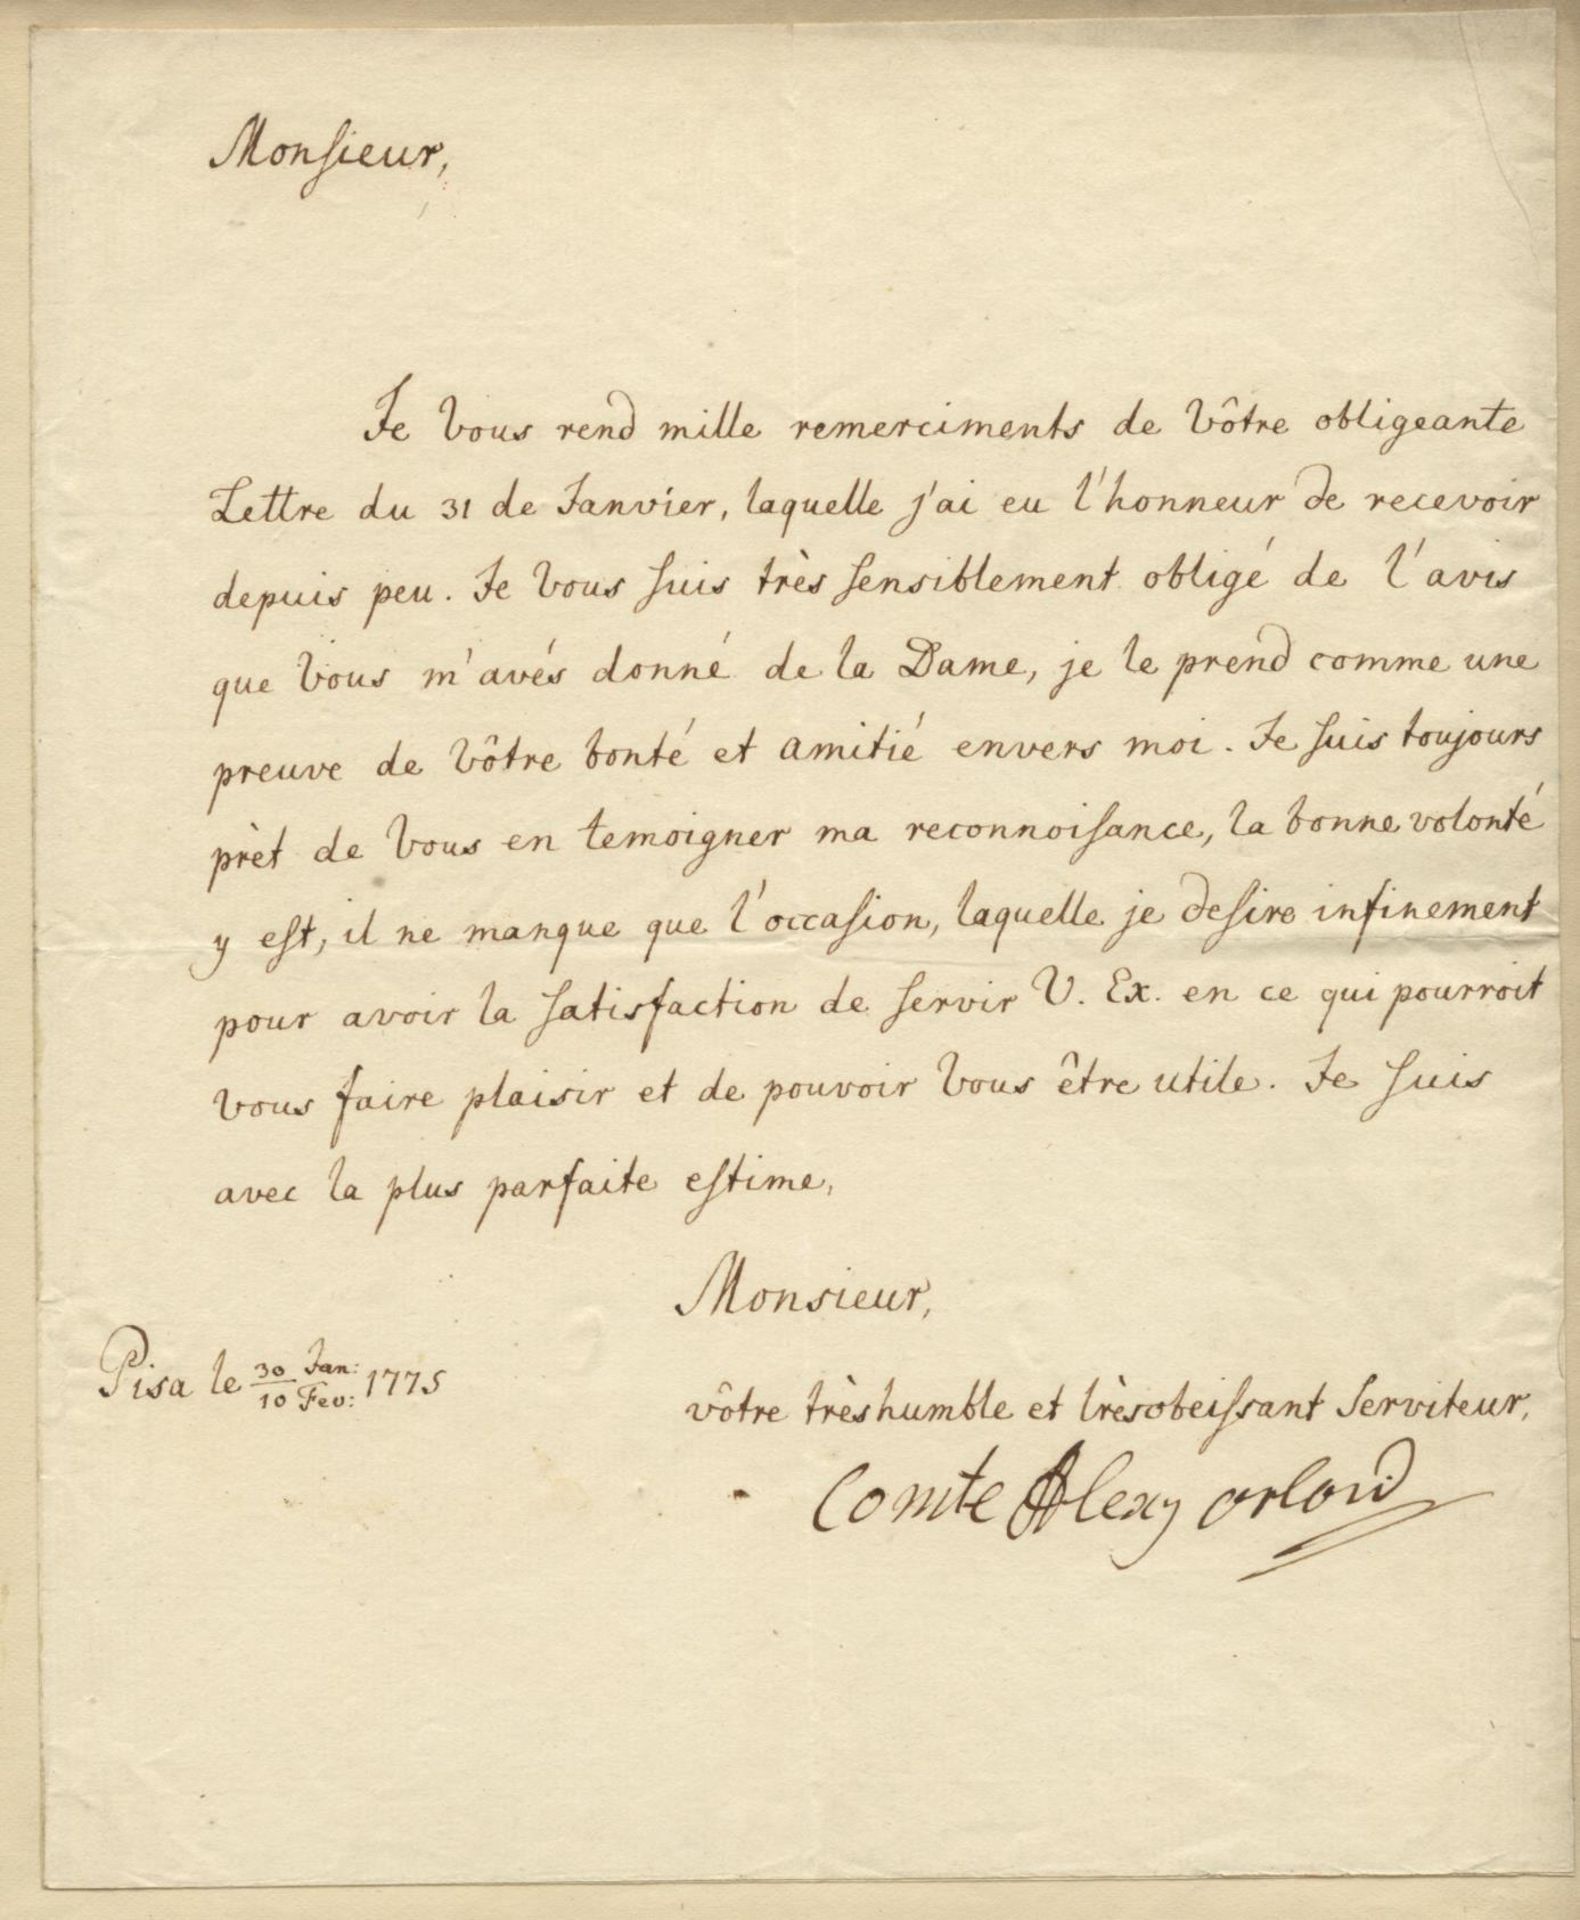 Monsieur,
Je Vous rend mille remerciments de Vôtre obligeante
Lettre du 31 de Janvier, laquelle j'ai eu l'honneur de recevoir
depuis peu. Je Vous suis très sensiblement obligé de l'avis
que Vous m'avés donné de la Dame, je le prend comme une
preuve de Vôtre bonté et amitié envers moi. Je suis toujours
prèt de Vous en temoigner ma reconnoisance, la bonne volonté
y est, il ne manque que l'occasion, laquelle je desire infinement
pour avoir la satisfaction de servir V. Ex. en ce qui pourroit
vous faire plaisir et de pouvoir Vous être utile. Je suis
avec la plus parfaite estime,
Monsieur,
Pisa le 30 Jan: / 10 Fev: 1775
vôtre très humble et très obeissant Serviteur,
Comte Alexy Orlow